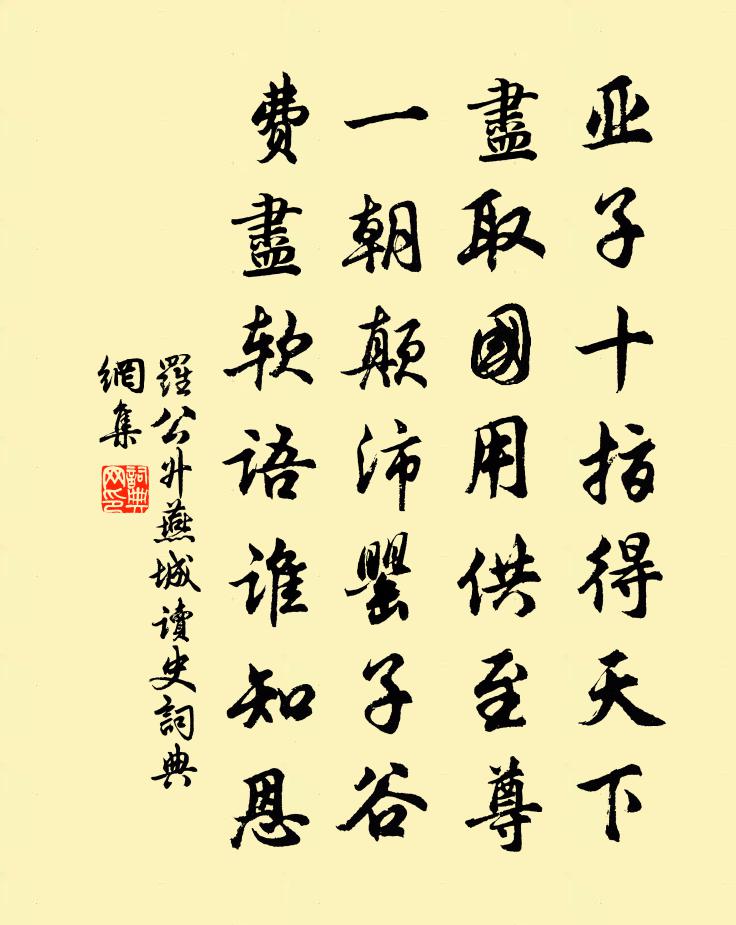 亚子十指得天下
盡取國用供至尊
一朝顛沛罌子谷
費盡软語谁知恩
羅公升燕城讀史詞典
網集
詞典網印